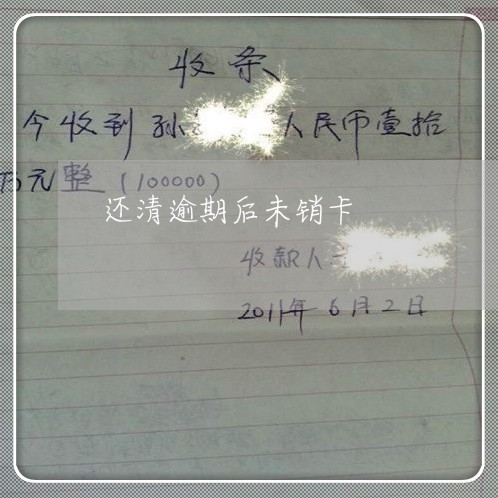 收条
今收到孙 人民币壹拾
万元整(100000)
还清逾期后未销卡
收款人
2011年6月2日